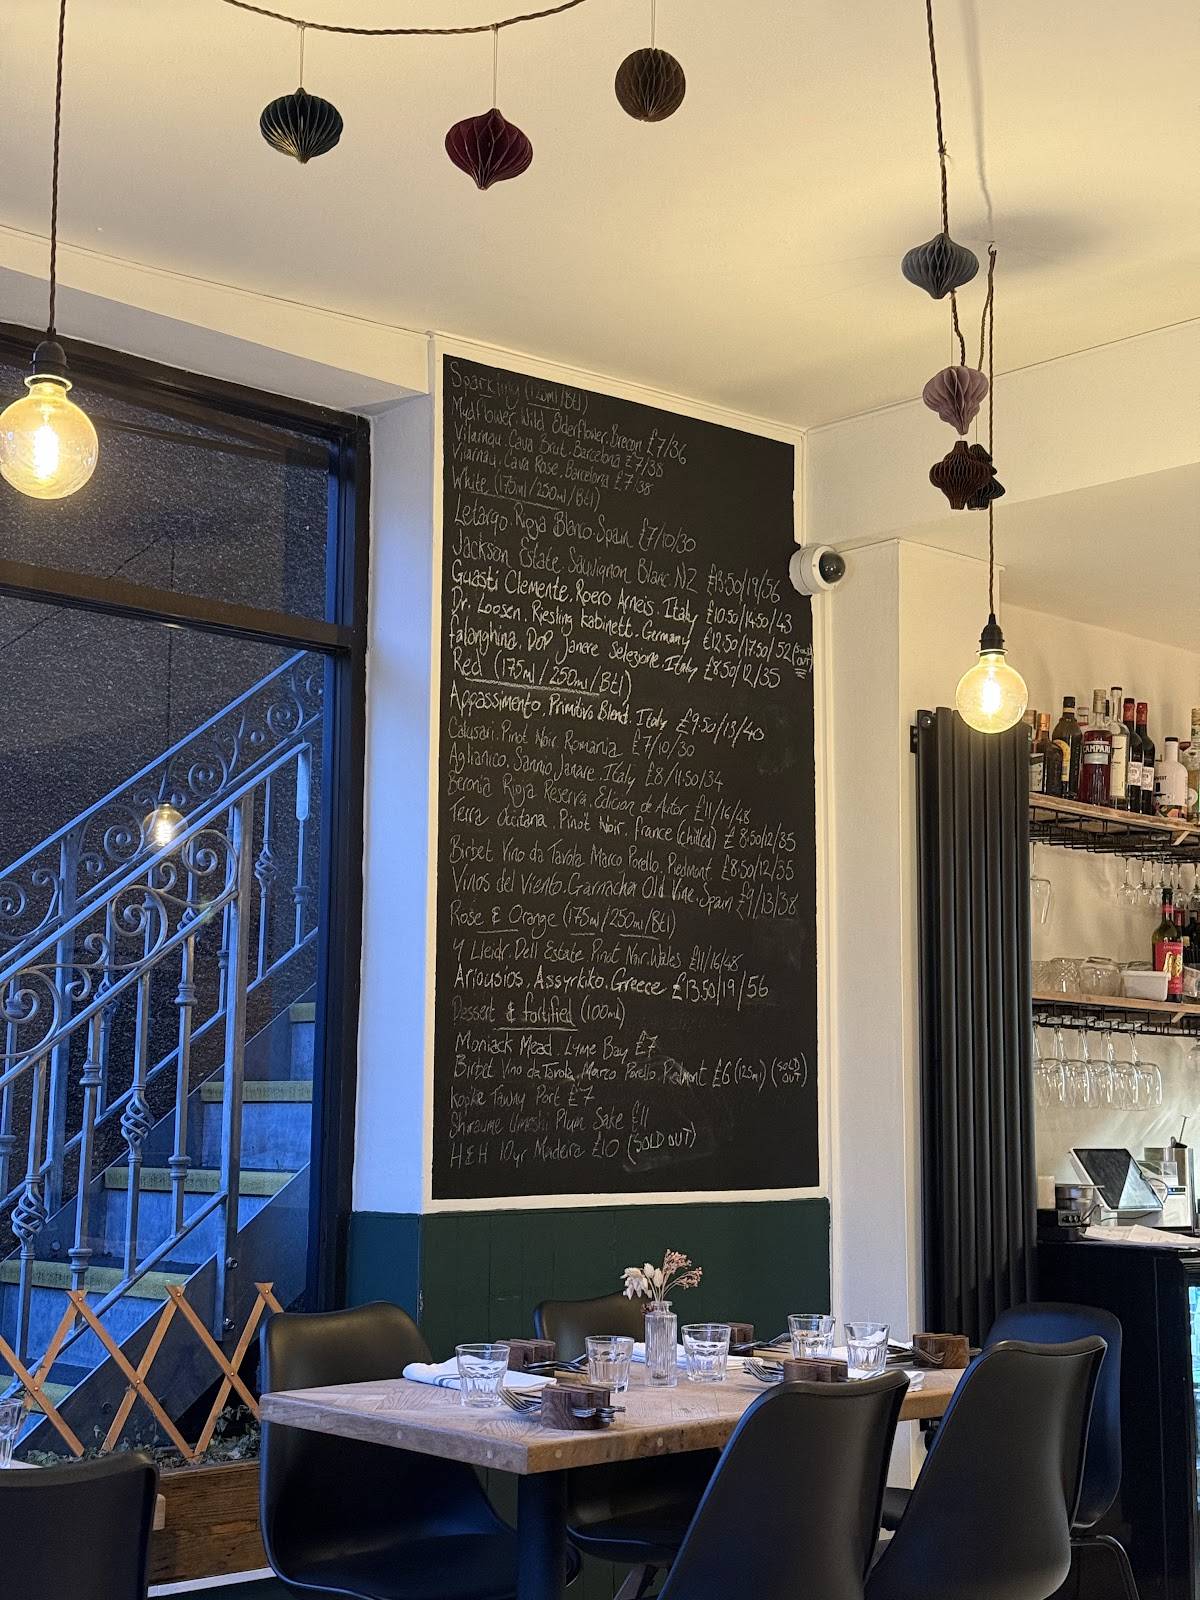 Sparkling (125ml/Btl)
Mudflower, Wild Elderflower. Brecon £7/36
Vilarnau, Cava Brut, Barcelona £7/38
Vilarnay, Cava Rose, Barcelona £7/38
White (175ml/250ml/Btl)
Letargo. Rioja Blanco. Spain £7/10/30
Jackson Estate. Sauvignon Blanc NZ £13.50/19/56
Guasti Clemente. Roero Arneis. Italy £10.50/14.50/43
Dr. Loosen. Riesling Kabinett. Germany £12.50/17.50/52 (SOLD OUT)
Falanghina. DOP Janare Selezione. Italy £8.50/12/35
Red (175ml/250ml/Btl)
Appassimento. Primitivo Blend. Italy £9.50/13/40
Calusari. Pinot Noir. Romania £7/10/30
Aglianico. Sannio Janare. Italy £8/11.50/34
Beronia Rioja Reserva. Edicion de Autor £11/16/48
Terra Occitana. Pinot Noir. France (chilled) £8.50/12/35
Birbet Vino da Tavola. Marco Porello. Piedmont. £8.50/12/35
Vinos del Viento. Garnacha Old Vine. Spain £9/13/38
Rose & Orange (175ml/250ml/Btl)
Y Lleidr. Dell Estate Pinot Noir. Wales £11/16/48
Ariousios. Assyrktiko. Greece £13.50/19/56
Dessert & Fortified (100ml)
Moniack Mead. Lyme Bay £7
Birbet Vino da Tavola. Marco Porello. Piedmont £6 (125ml) (SOLD OUT)
Kopke Tawny Port £7
Umeshi Plum Sake £11
H&H 10yr Madeira £10 (SOLD OUT)
CAMPARI